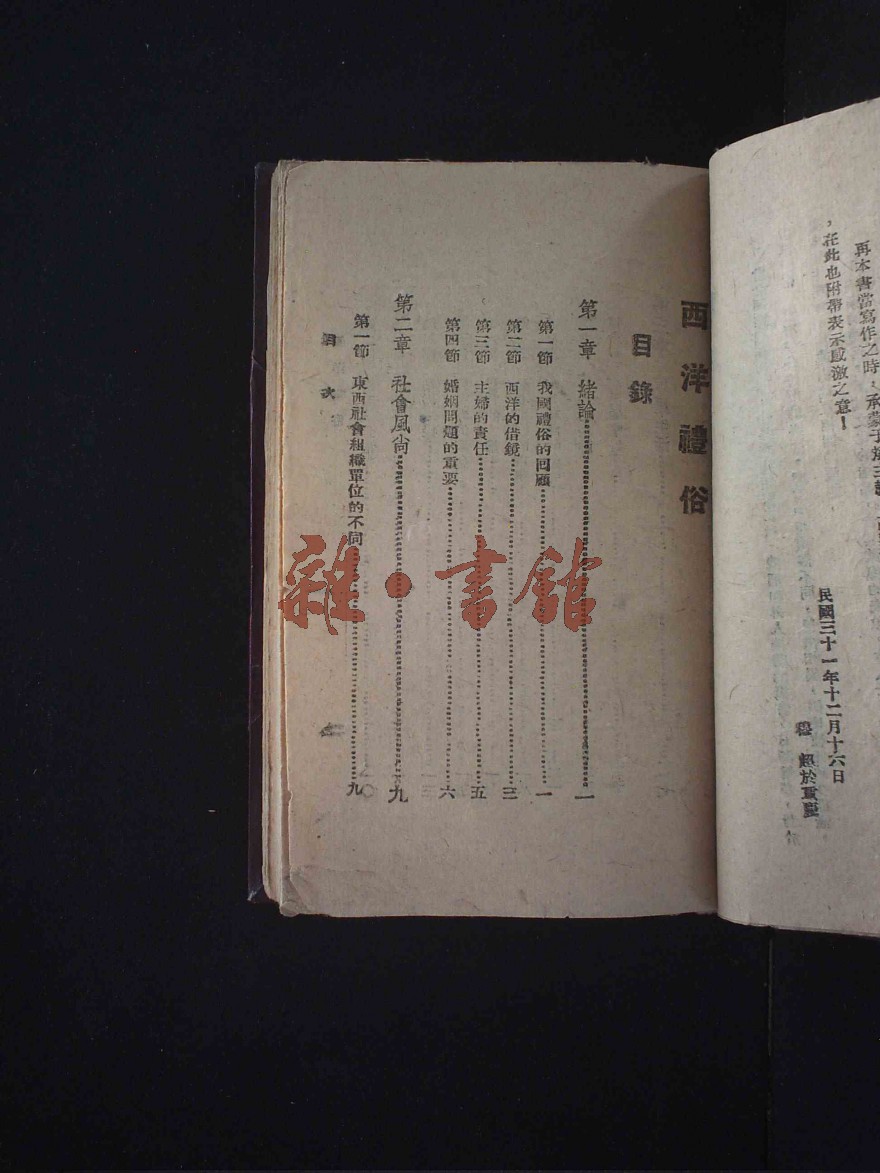 再本書當寫作之時，承蒙于斌主教
，在此也附帶表示感激之意！
民國三十一年十二月十六日
穆　超於重慶
西洋禮俗
目錄
第一章　緒論……一
第一節　我國禮俗的回顧……一
第二節　西洋的借鏡……三
第三節　主婦的責任……五
第四節　婚姻問題的重要……六
第二章　社會風尚……九
第一節　東西社會組織單位的不同……九
目次
一
雜·書館